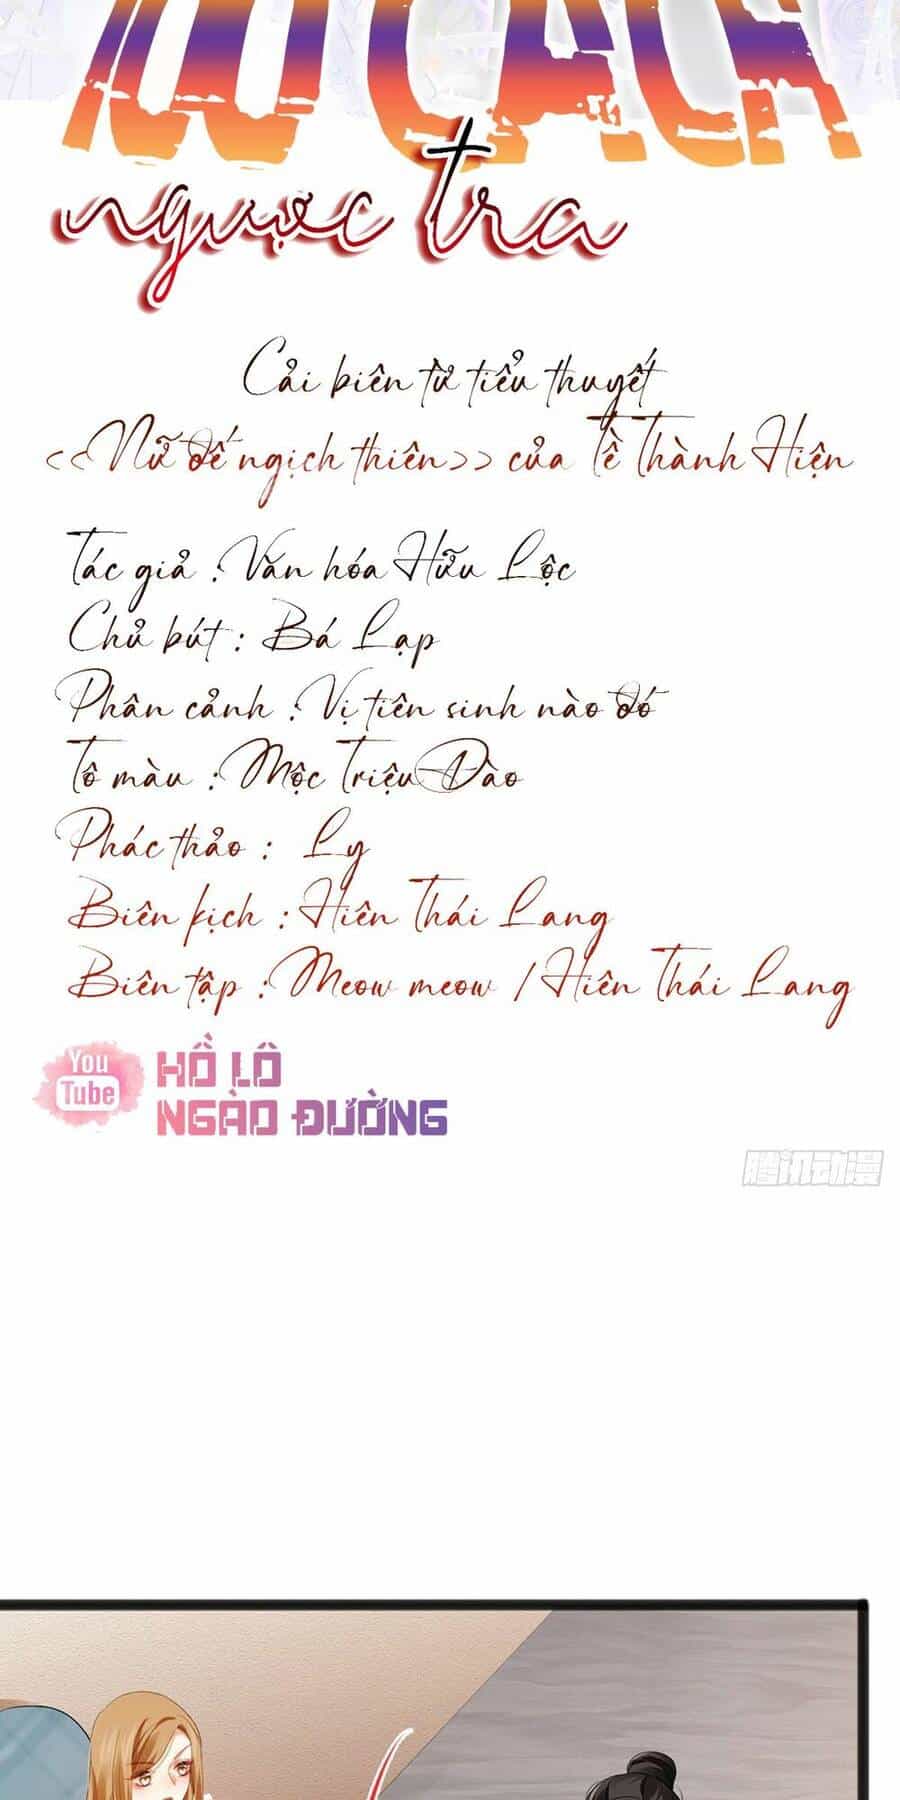 100 CÁCH
ngược tra
Cải biên từ tiểu thuyết
<<Nữ đế ngịch thiên>> của Tề Thành Hiện
Tác giả : Văn hóa Hữu Lộc
Chủ bút : Bá Lạp
Phân cảnh : Vị tiên sinh nào đó
Tô màu : Mộc Triệu Dào
Phác thảo : Ly
Biên kịch : Hiên Thái Lang
Biên tập : Meow meow / Hiên Thái Lang
You
Tube
HỒ LÔ
NGÀO ĐƯỜNG
腾讯动漫